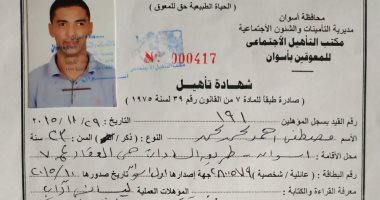 ( الحياة الطبيعية حق للمعوق )
محافظة أسوان
مديرية التأمينات والشئون الاجتماعية
مكتب التأهيل الاجتماعى
للمعوقين بأسوان
№ 000417
شهادة تأهيل
( صادرة طبقاً للمادة ٧ من القانون رقم ٣٩ لسنة ١٩٧٥ )
رقم القيد بسجل المؤهلين ١٩١ التاريخ: ٢٠١٥/١١/٢٩
الأسم مصطفى احمد محمد محمد النوع: (ذكر / السن: ٢٣ سنة
محل الأقامة: اسوان
رقم البطاقة: ( عائلية / شخصية ) جهة إصدارها أسوان تاريخ صدورها
معرفة القراءة والكتابة: المؤهلات العملية ليسانس آداب